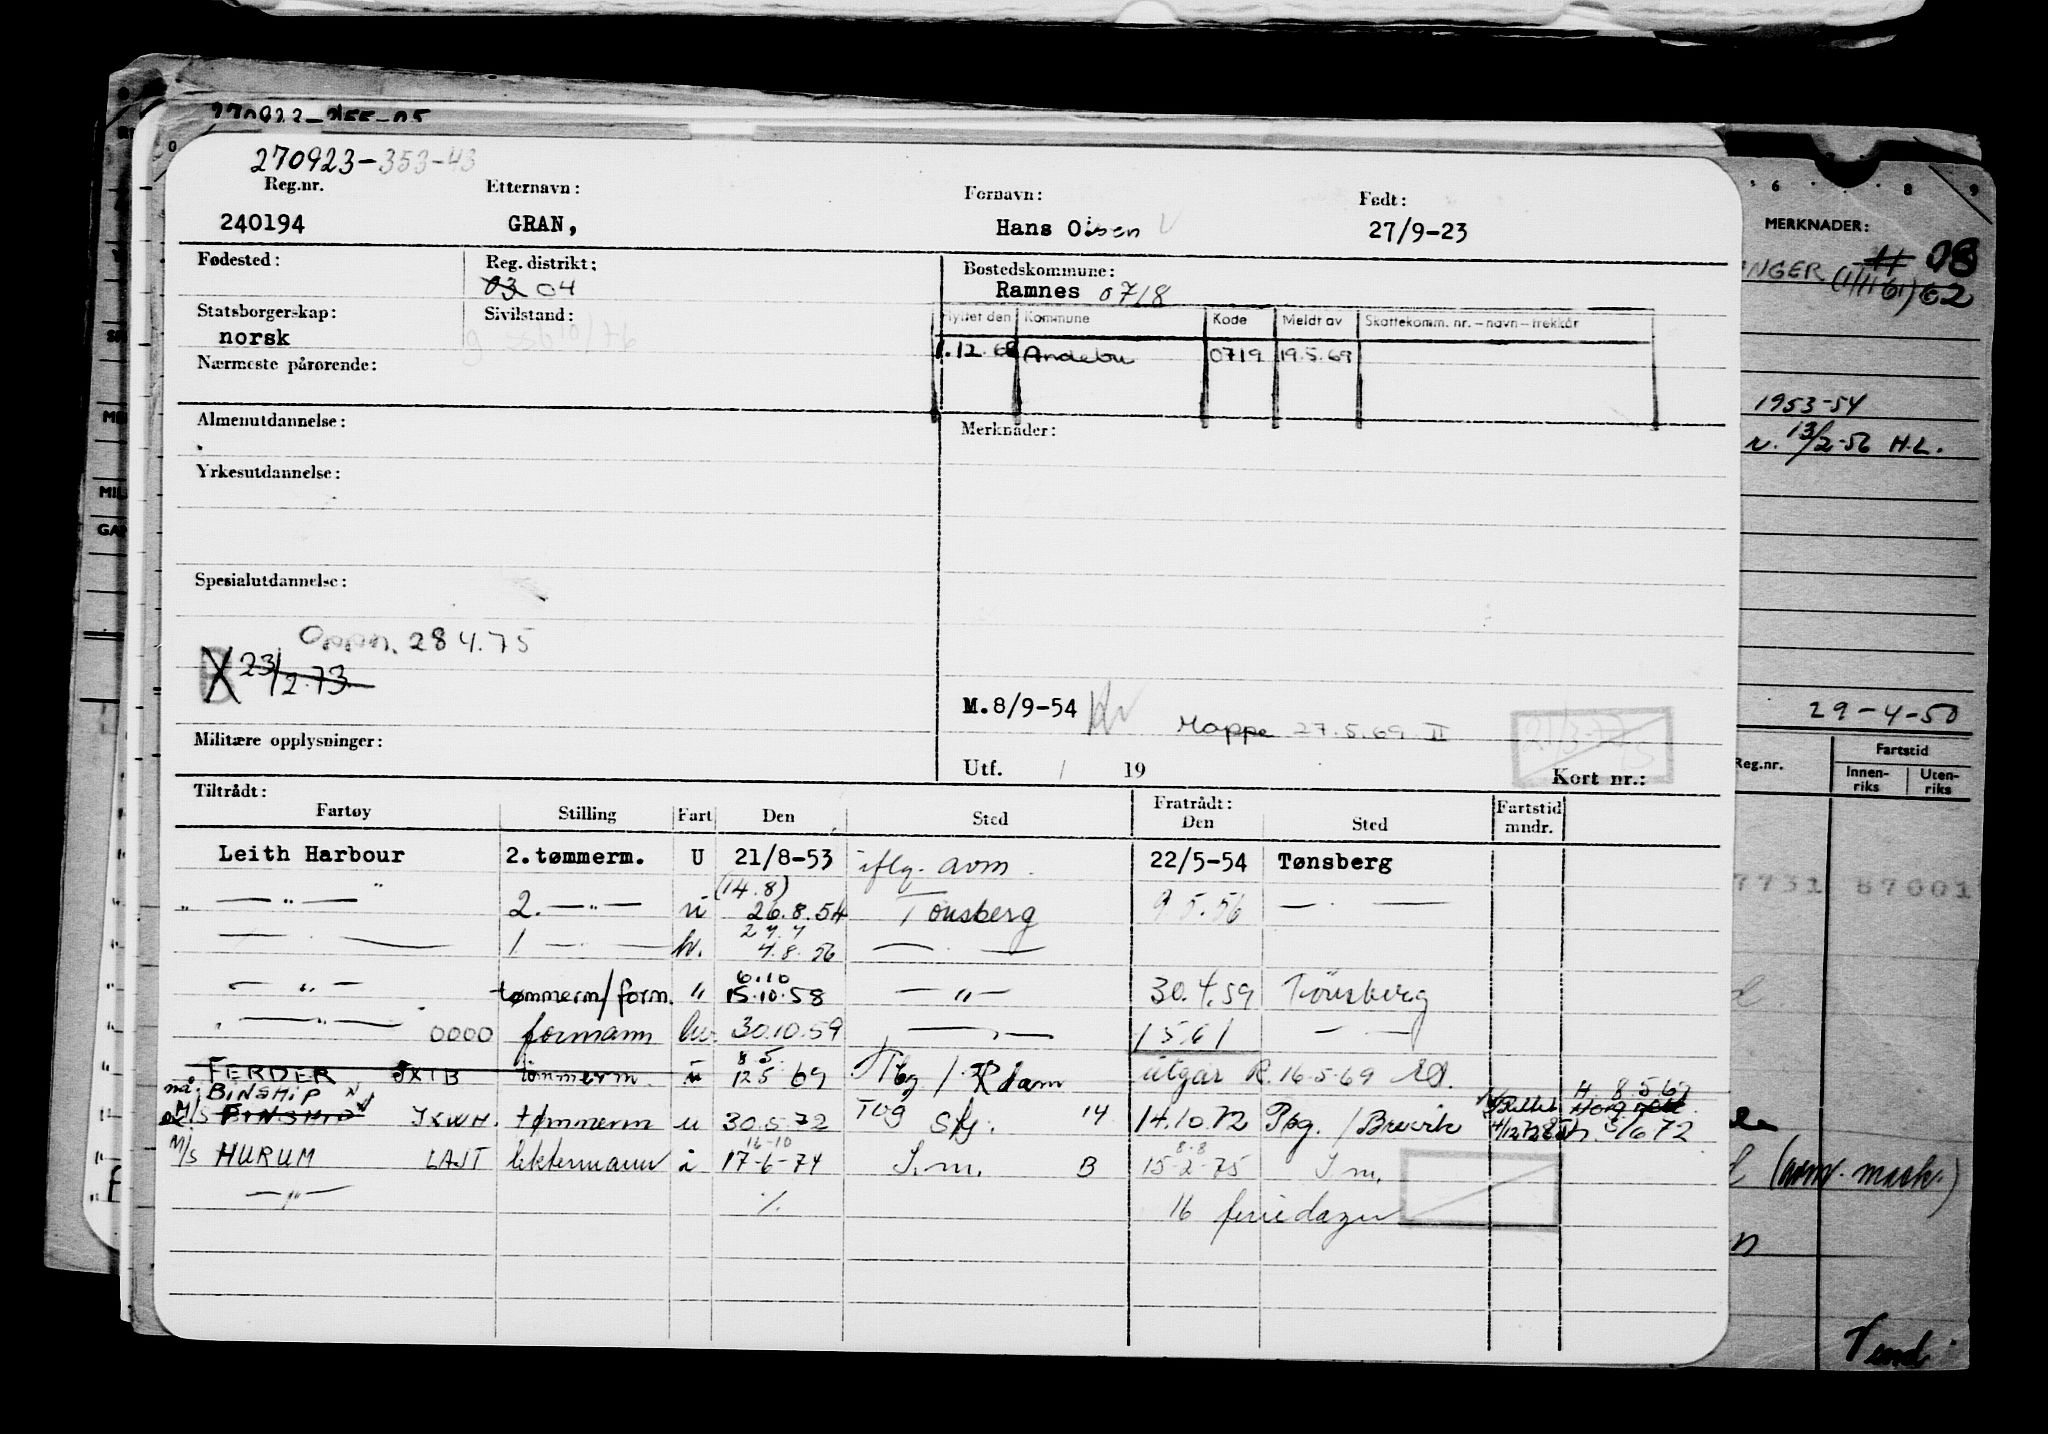 270923-353-43
Reg.nr. Etternavn: Fornavn: Født:
240194 GRAN, Hans Olsen 27/9-23
Fødested: Reg. distrikt: Bostedskommune:
03 04 Ramnes 0718
Statsborgerskap: Sivilstand: Flyttet den Kommune Kode Meldt av Skattekomm. nr. – navn – trekkår
norsk 1.12.68 Andebu 0719 19.5.69
Nærmeste pårørende:
Almenutdannelse: Merknader:
Yrkesutdannelse:
Spesialutdannelse:
Oppn. 28 4.75
23/2.73
M.8/9-54
Mappe 27.5.69 II
Militære opplysninger:
Utf. / 19 Kort nr.:
Tiltrådt: Fratrådt:
Fartøy Stilling Fart Den Sted Den Sted Fartstid mndr.
Leith Harbour 2.tømmerm. U 21/8-53 iflg. avm 22/5-54 Tønsberg
(14.8)
" — " — 2. — " — u 26.8.54 Tønsberg 9 5.56 — . —
1 — . — hv. 4.8.56 — . —
6.10
— " — tømmerm/form. " 15.10.58 — " — 30.4.59 Tönsberg
— " — 0000 formann hv. 30.10.59 — " — 1 5 61 — . —
8 5.
FERDER JXIB tømmerm. u 12 5 69 Tbg / Rdam utgår R. 16-5-69
BINSHIP H 8 5 69
M/S BINSHIP JXWH. tømmerm u 30.5.72 14 14.10.72 Pog. / Brevik 5/6 72
16-10 8-8
M/S HURUM LAJT lektermann i 17-6-74 S.m. B 15-2-75 S m.
— " — ⁒ 16 feriedager
6 8 9
MERKNADER:
11 08
(1/11 61) 62
1953-54
13/2-56 H.L.
29-4-50
Reg.nr. Fartstid
Innen-riks Uten-riks
7731 87001
(avm. mask.)
Vend